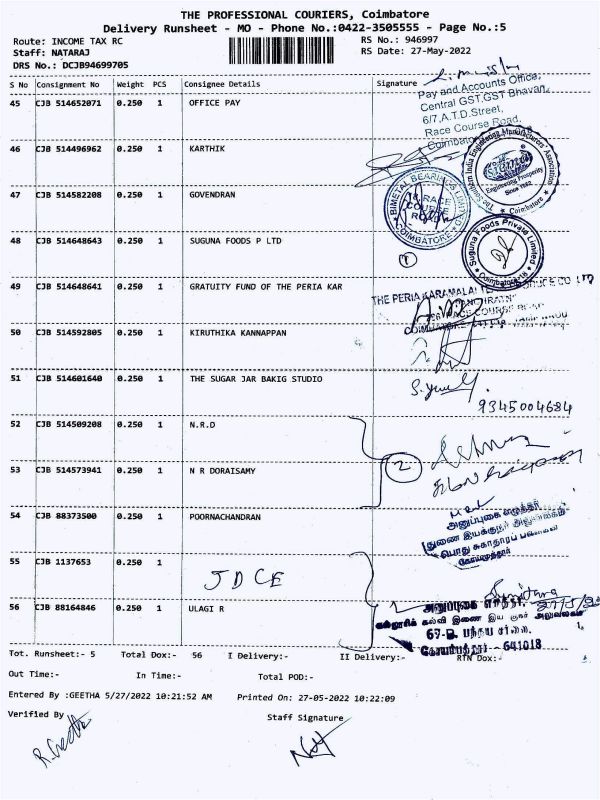 THE PROFESSIONAL COURIERS, Coimbatore
Delivery Runsheet - MO - Phone No.:0422-3505555 - Page No.:5
Route: INCOME TAX RC
RS No.: 946997
Staff: NATARAJ
RS Date: 27-May-2022
DRS No.: DCJB94699705
S No Consignment No Weight PCS Consignee Details Signature
45 CJB 514652071 0.250 1 OFFICE PAY
Pay and Accounts Office,
Central GST,GST Bhavan,
6/7,A.T.D.Street,
Race Course Road,
46 CJB 514496962 0.250 1 KARTHIK
Engineering Prosperity
Coimbatore
47 CJB 514582208 0.250 1 GOVENDRAN
BIMETAL BEARINGS LIMITED
18, RACE
COURSE
ROAD
COIMBATORE
48 CJB 514648643 0.250 1 SUGUNA FOODS P LTD
1
Suguna Foods Private Limited
49 CJB 514648641 0.250 1 GRATUITY FUND OF THE PERIA KAR
THE PERIA KARAMALAI
50 CJB 514592805 0.250 1 KIRUTHIKA KANNAPPAN
51 CJB 514601640 0.250 1 THE SUGAR JAR BAKIG STUDIO
9345004684
52 CJB 514509208 0.250 1 N.R.D
2
53 CJB 514573941 0.250 1 N R DORAISAMY
54 CJB 88373500 0.250 1 POORNACHANDRAN
அனுப்புகை எழுத்தர்
பொது சுகாதாரப்
கோயமுத்தூர்
55 CJB 1137653 0.250 1
JDCE
56 CJB 88164846 0.250 1 ULAGI R
அனுப்புகை எழுத்தர்,
67-D. பந்தய சாலை,
கோயம்புத்தூர் - 641018
Tot. Runsheet:- 5 Total Dox:- 56 I Delivery:- II Delivery:- RTN Dox:-
Out Time:- In Time:- Total POD:-
Entered By :GEETHA 5/27/2022 10:21:52 AM Printed On: 27-05-2022 10:22:09
Verified By
Staff Signature
R. Geetha